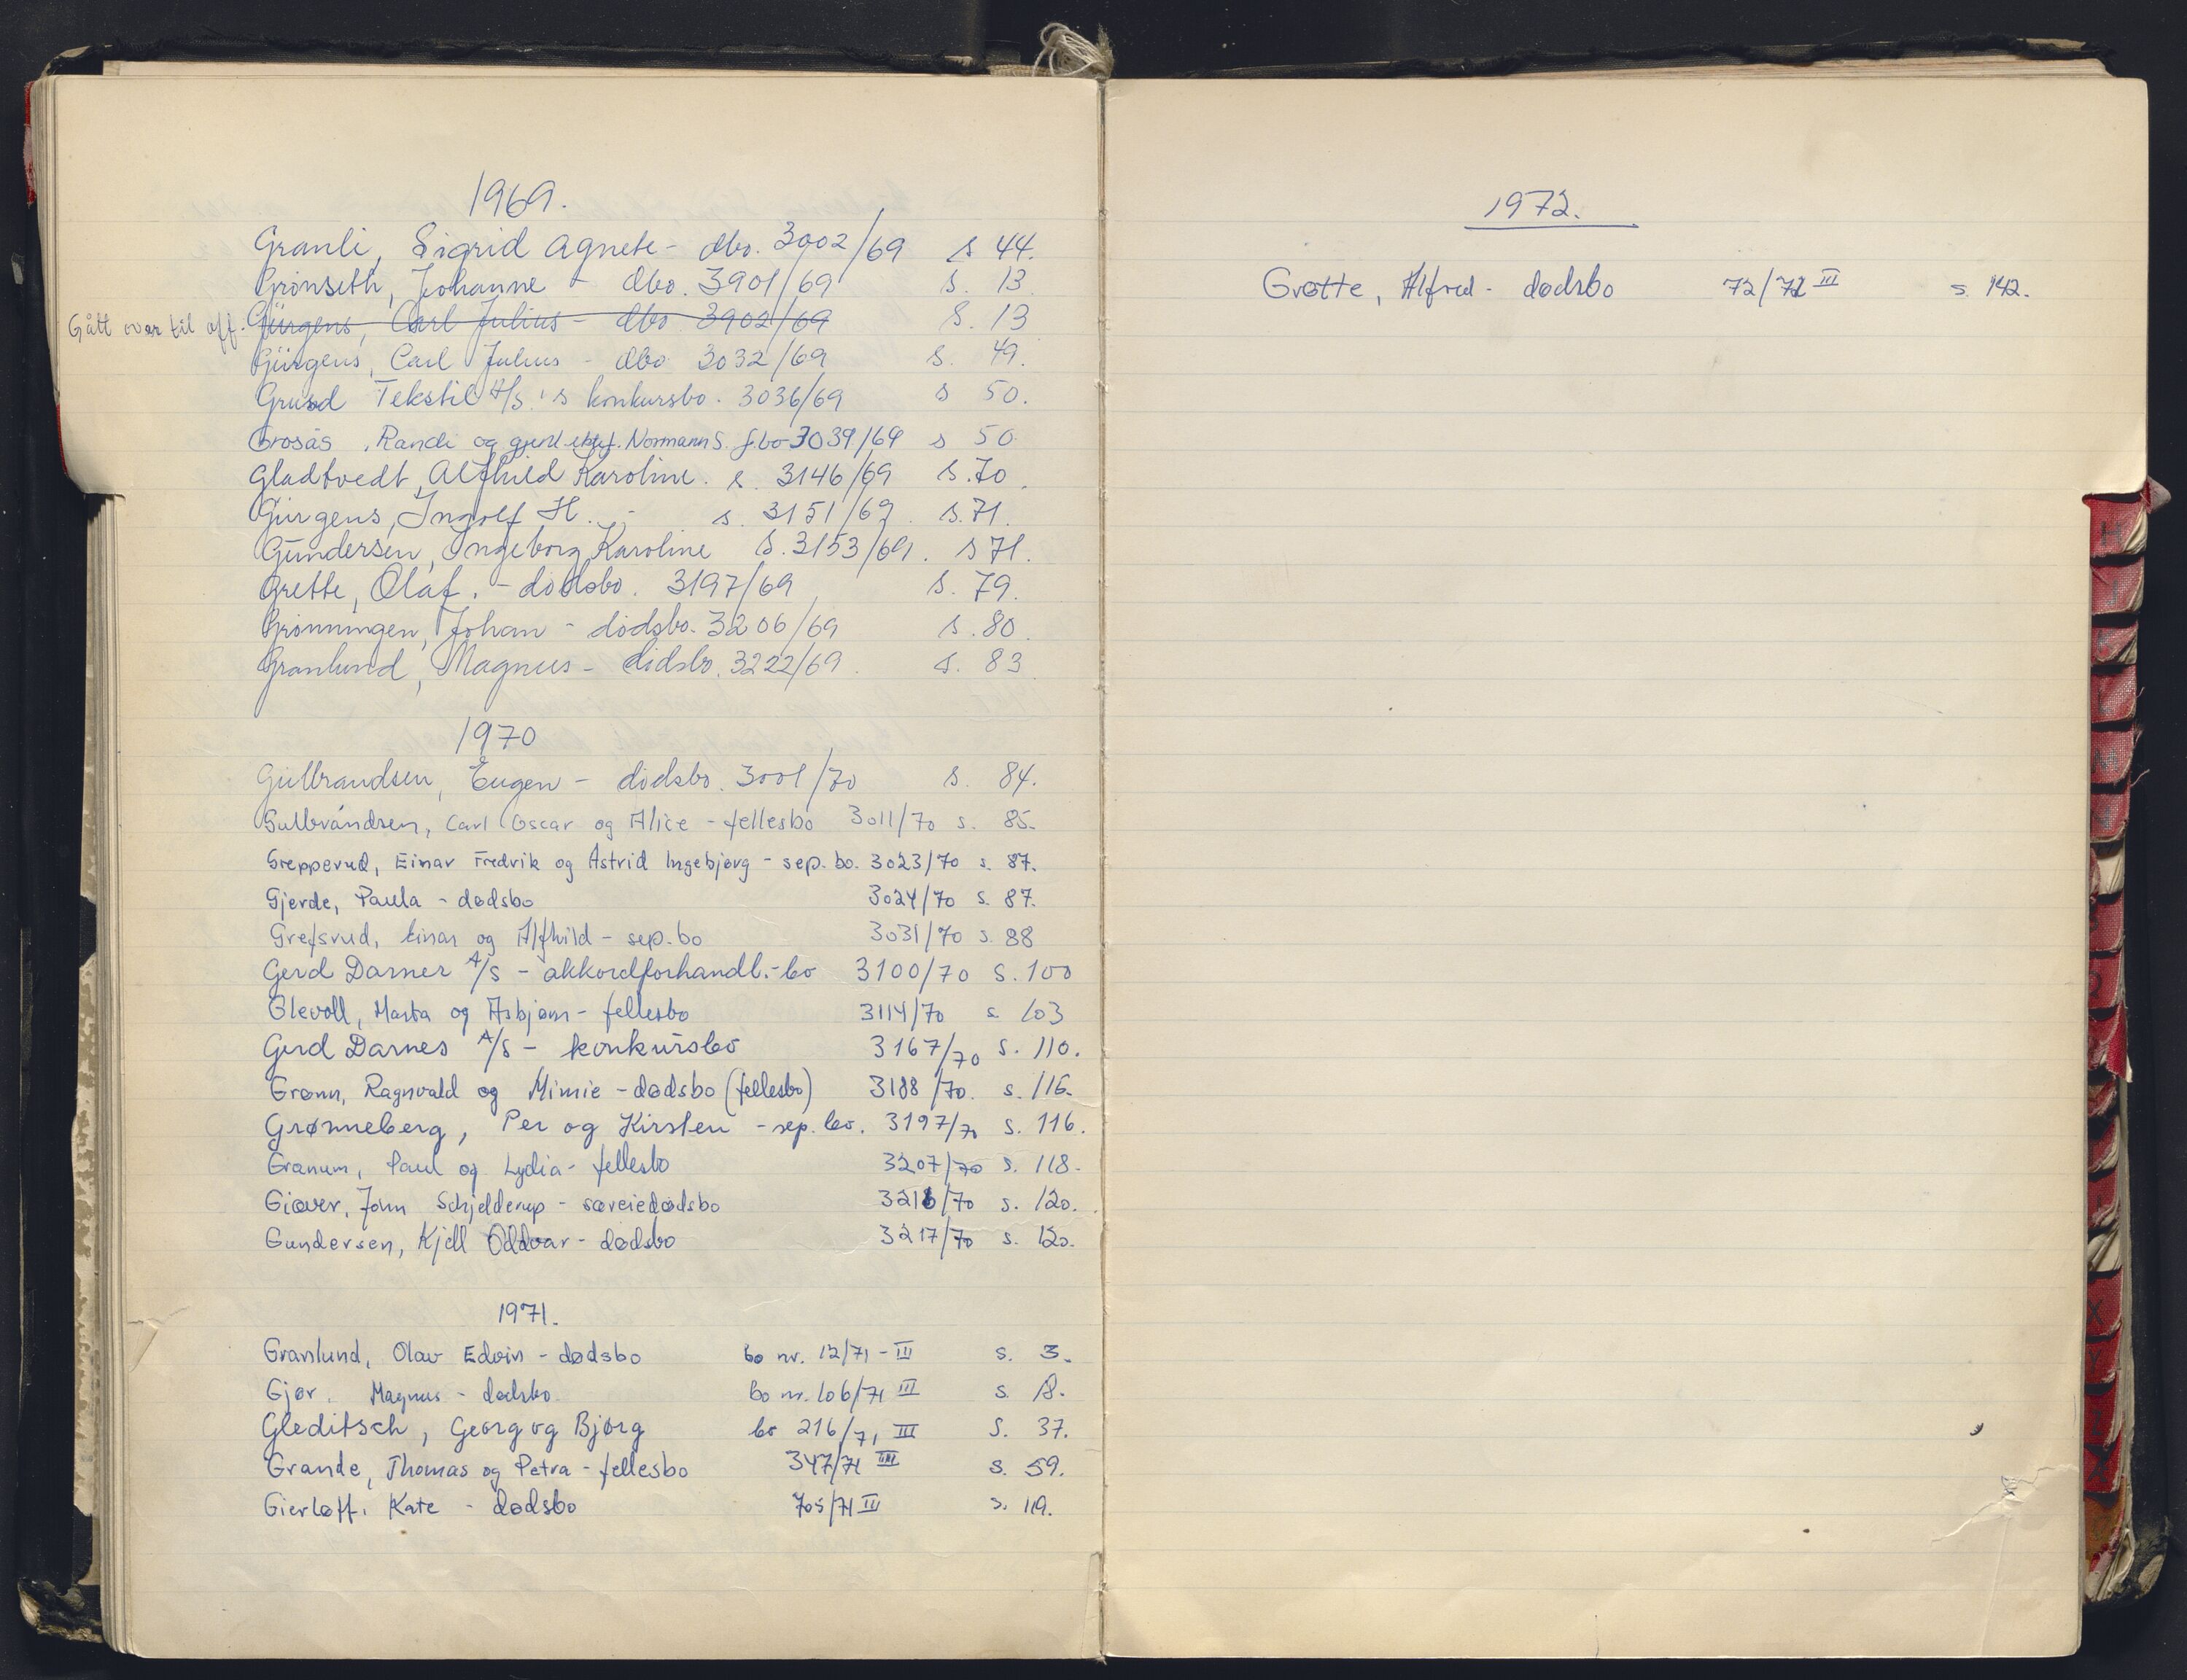 1969.
Granli, Sigrid Agnete - dbo. 3002/69 s 44.
Grönseth, Johanne - dbo. 3901/69 s. 13
Gått over til off. Gürgens, Carl Julius - dbo 3902/69 S. 13
Gürgens, Carl Julius - dbo 3032/69 s. 49.
Grund Tekstil A/S.'s konkursbo. 3036/69 s 50.
Grosås, Randi og Normann S. f.bo 3039/69 s 50
Gladtvedt, Alfhild Karoline. s. 3146/69 s. 70.
Gürgens, Ingolf H. - s. 3151/69. s. 71.
Gundersen, Ingeborg Karoline S. 3153/69. s 71.
Grette, Olaf. - dödsbo. 3197/69 s. 79.
Grönningen, Johan - dödsbo. 3206/69 s. 80.
Granlund, Magnus - dödsbo. 3222/69. s. 83
1970
Gulbrandsen, Eugen - dödsbo. 3001/70 s. 84.
Gulbrandsen, Carl Oscar og Alice - fellesbo 3011/70 s. 85.
Grepperud, Einar Fredrik og Astrid Ingebjørg - sep. bo. 3023/70 s. 87.
Gjerde, Paula - dødsbo 3024/70 s. 87.
Grefsrud, Einar og Alfhild - sep. bo 3031/70 s. 88
Gerd Darner A/S - akkordforhandl.-bo 3100/70 S. 100
Glevoll, Marta og Asbjørn - fellesbo 3114/70 s. 103
Gerd Darnes A/S - konkursbo 3167/70 S. 110.
Grønn, Ragnvald og Mimie - dødsbo (fellesbo) 3188/70. s. 116.
Grønneberg, Per og Kirsten - sep. bo. 3197/70 S. 116.
Granum, Paul og Lydia - fellesbo 3207/70 s. 118.
Giæver, John Schjelderup - særeiedødsbo 3216/70 s. 120.
Gundersen, Kjell Oddvar - dødsbo 3217/70 s. 120.
1971.
Granlund, Olav Edvin - dødsbo bo nr. 12/71 - III s. 3.
Gjør, Magnus - dødsbo. bo nr. 106/71 III s. 18.
Gleditsch, Georg og Bjørg bo 216/71 III S. 37.
Grande, Thomas og Petra - fellesbo 347/71 III s. 59.
Gierløff, Kate - dødsbo 705/71 III s. 119.
1972.
Grøtte, Alfred - dødsbo 72/72 III s. 142.
H
X
Y